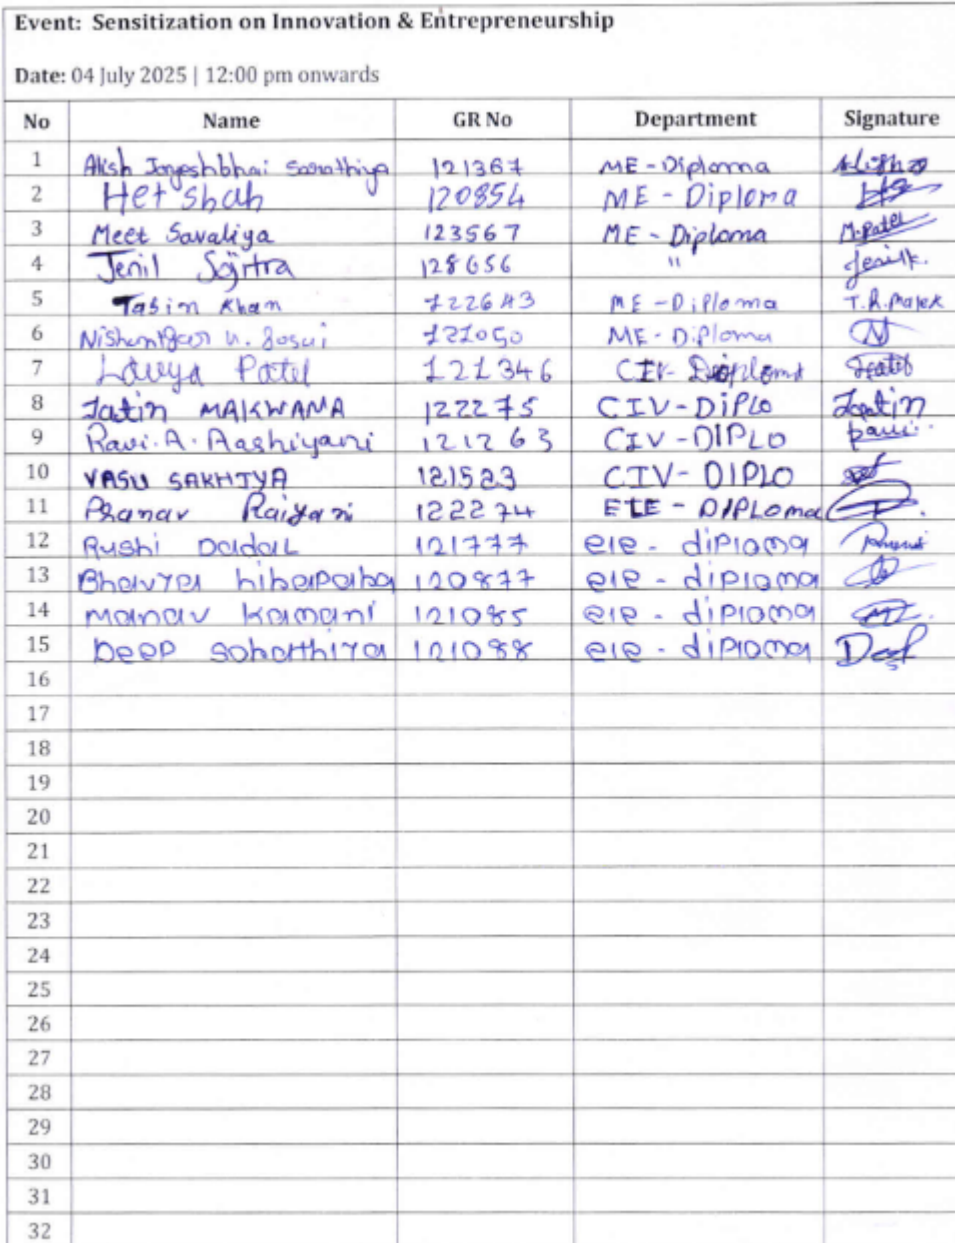 Event: Sensitization on Innovation & Entrepreneurship
Date: 04 July 2025 | 12:00 pm onwards
No Name GR No Department Signature
1 Alish Jayeshbhai Sarathiya 121367 ME-Diploma
2 Het Shah 120854 ME - Diploma
3 Meet Savaliya 123567 ME - Diploma M.Patel
4 Jenil Sojitra 128656 " Jenilk.
5 Tasim Khan 122643 ME-Diploma T.R.Malek
6 121050 ME-Diploma
7 Lavya Patel 121346 CIV-Diploma
8 Jatin MAKWANA 122275 CIV-DiPLO Jatin
9 Ravi.A.Aashiyani 121263 CIV-DIPLO
10 VASU SAKHIYA 121523 CIV-DIPLO
11 Pranav Raiyani 122274 EIE-DIPLoma
12 Rushi Dadal 121777 eie - diploma
13 Bhavya 120877 eie - diploma
14 manav kamani 121085 eie - diploma
15 Deep sohathiya 121088 eie - diploma Deep
16
17
18
19
20
21
22
23
24
25
26
27
28
29
30
31
32